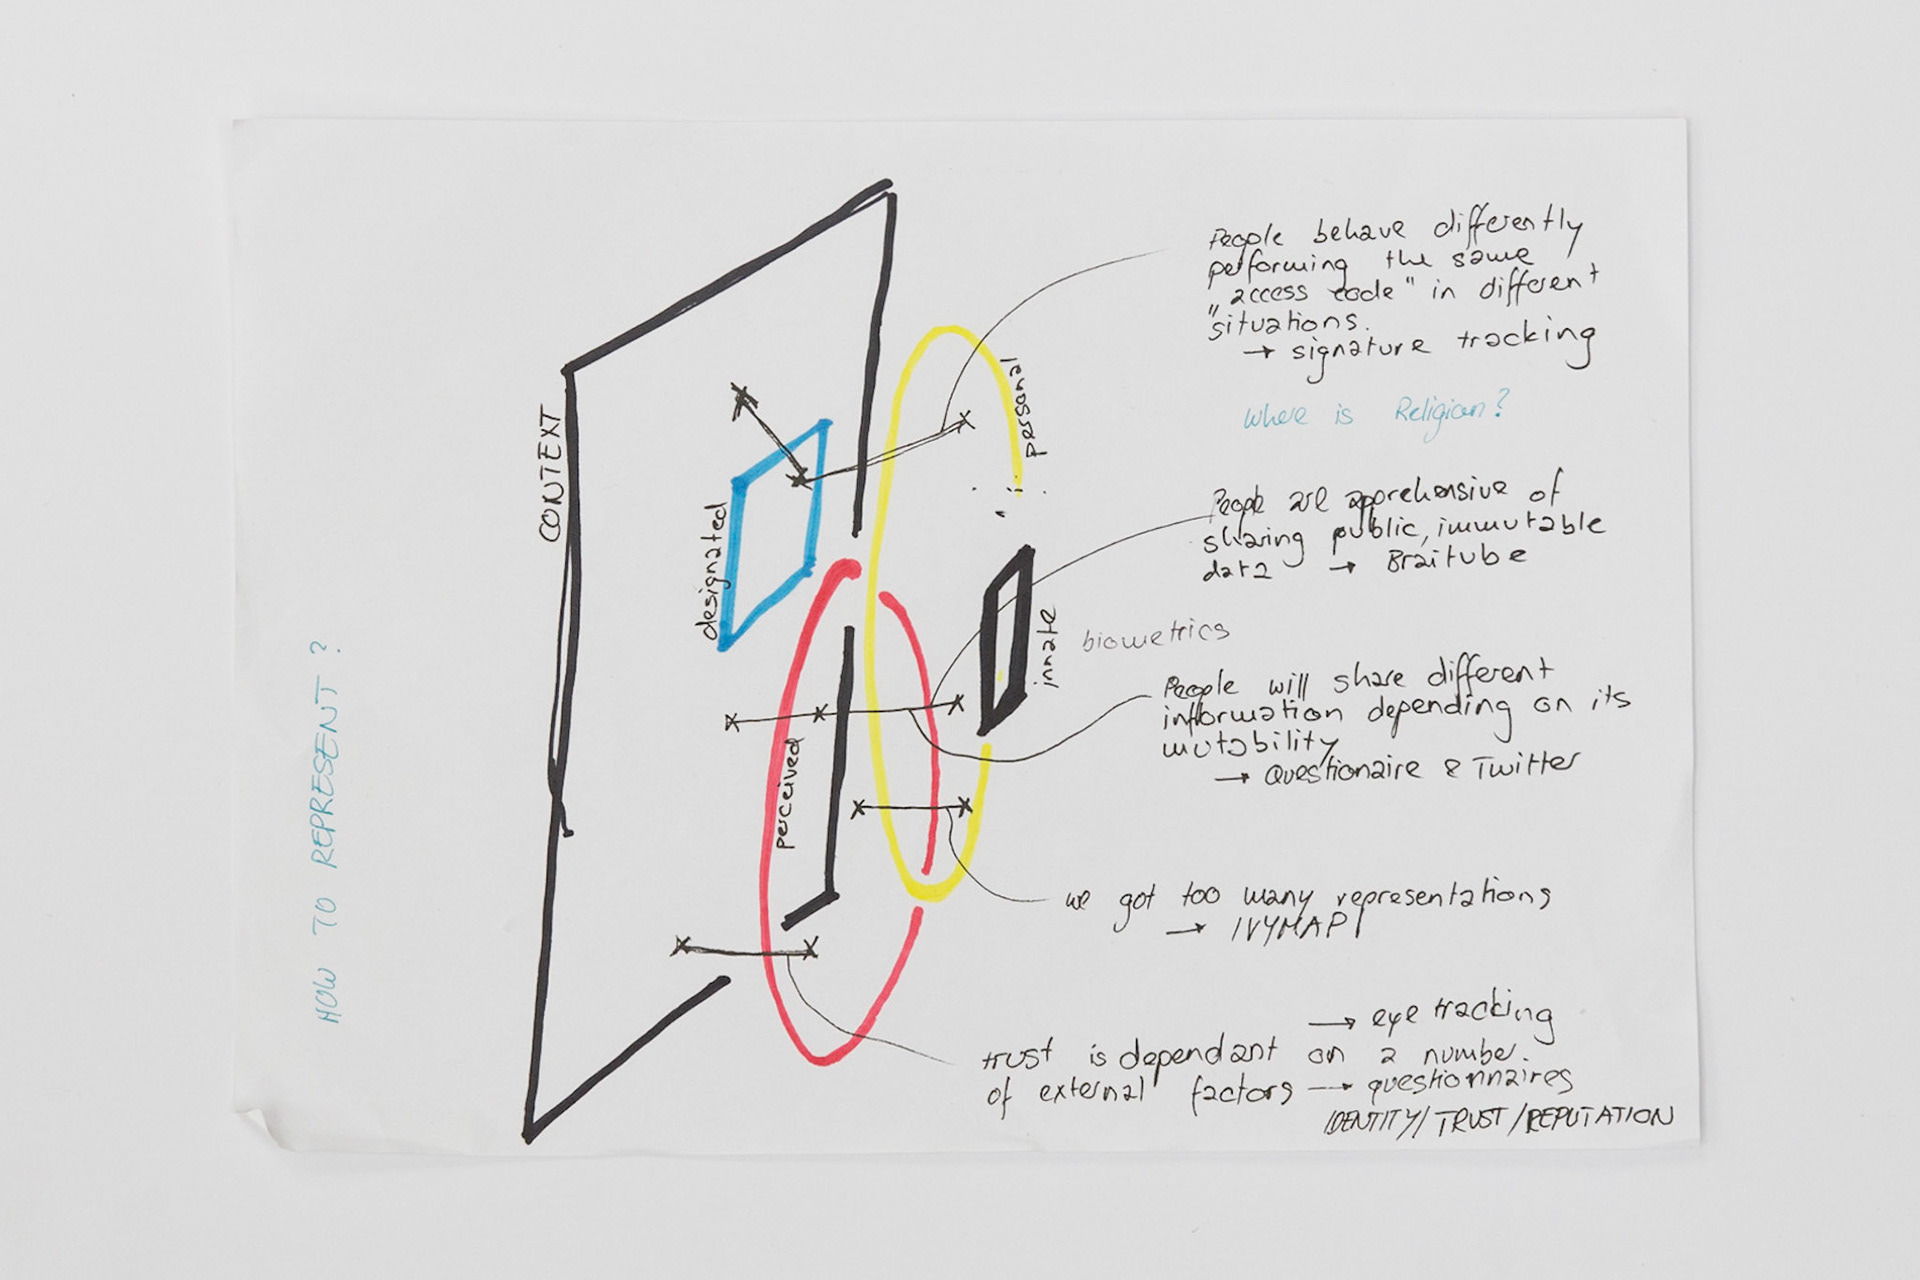 HOW TO REPRESENT?
CONTEXT
designated
perceived
personal
innate
People behave differently
performing the same
"access code" in different
situations.
→ signature tracking
where is Religion?
People are apprehensive of
sharing public, immutable
data →
biometrics
People will share different
information depending on its
mutability
→ Questionaire & Twitter
we got too many representations
→ IVYMAP
→ eye tracking
trust is dependant on a number
of external factors → questionnaires
IDENTITY/TRUST/REPUTATION